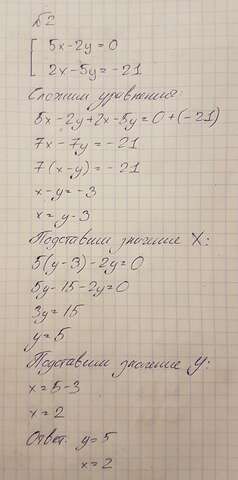 Б2
5x-2y=0
2x-5y=-21
Сложим уравнения:
5x-2y+2x-5y=0+(-21)
7x-7y=-21
7(x-y)=-21
x-y=-3
x=y-3
Подставим значение X:
5(y-3)-2y=0
5y-15-2y=0
3y=15
y=5
Подставим значение y:
x=5-3
x=2
Ответ: y=5
x=2